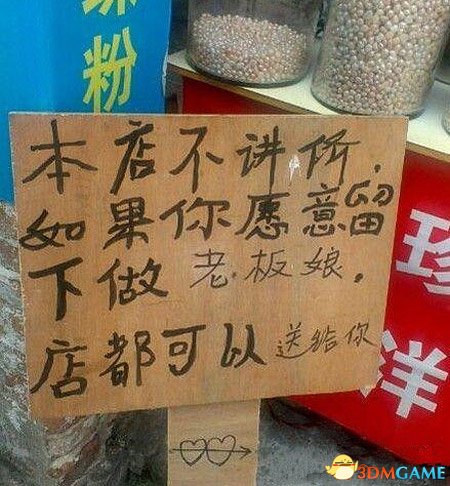 本店不讲价.
如果你愿意留
下做老板娘.
店都可以送给你
粉
珍
洋
3DMGAME